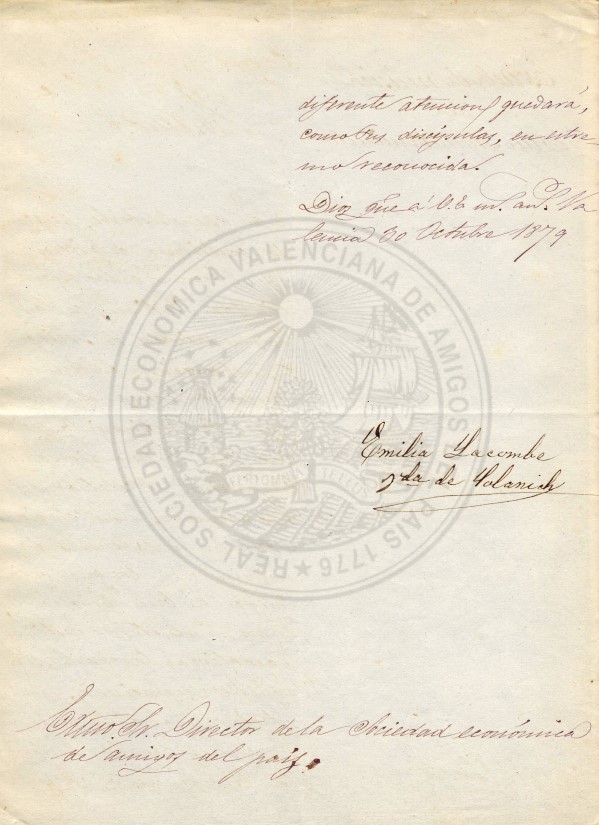 diferente atencion, quedará,
como sus discípulas, en estre-
mo reconocida.
Dios gue á V.E. m.s añ.s Va
lencia 30 Octubre 1879
REAL SOCIEDAD ECONOMICA VALENCIANA DE AMIGOS DEL PAIS 1776
Emilia Lacombe
Vda de Tolanich
Exmo. Sr. Director de la Sociedad económica
de amigos del país.